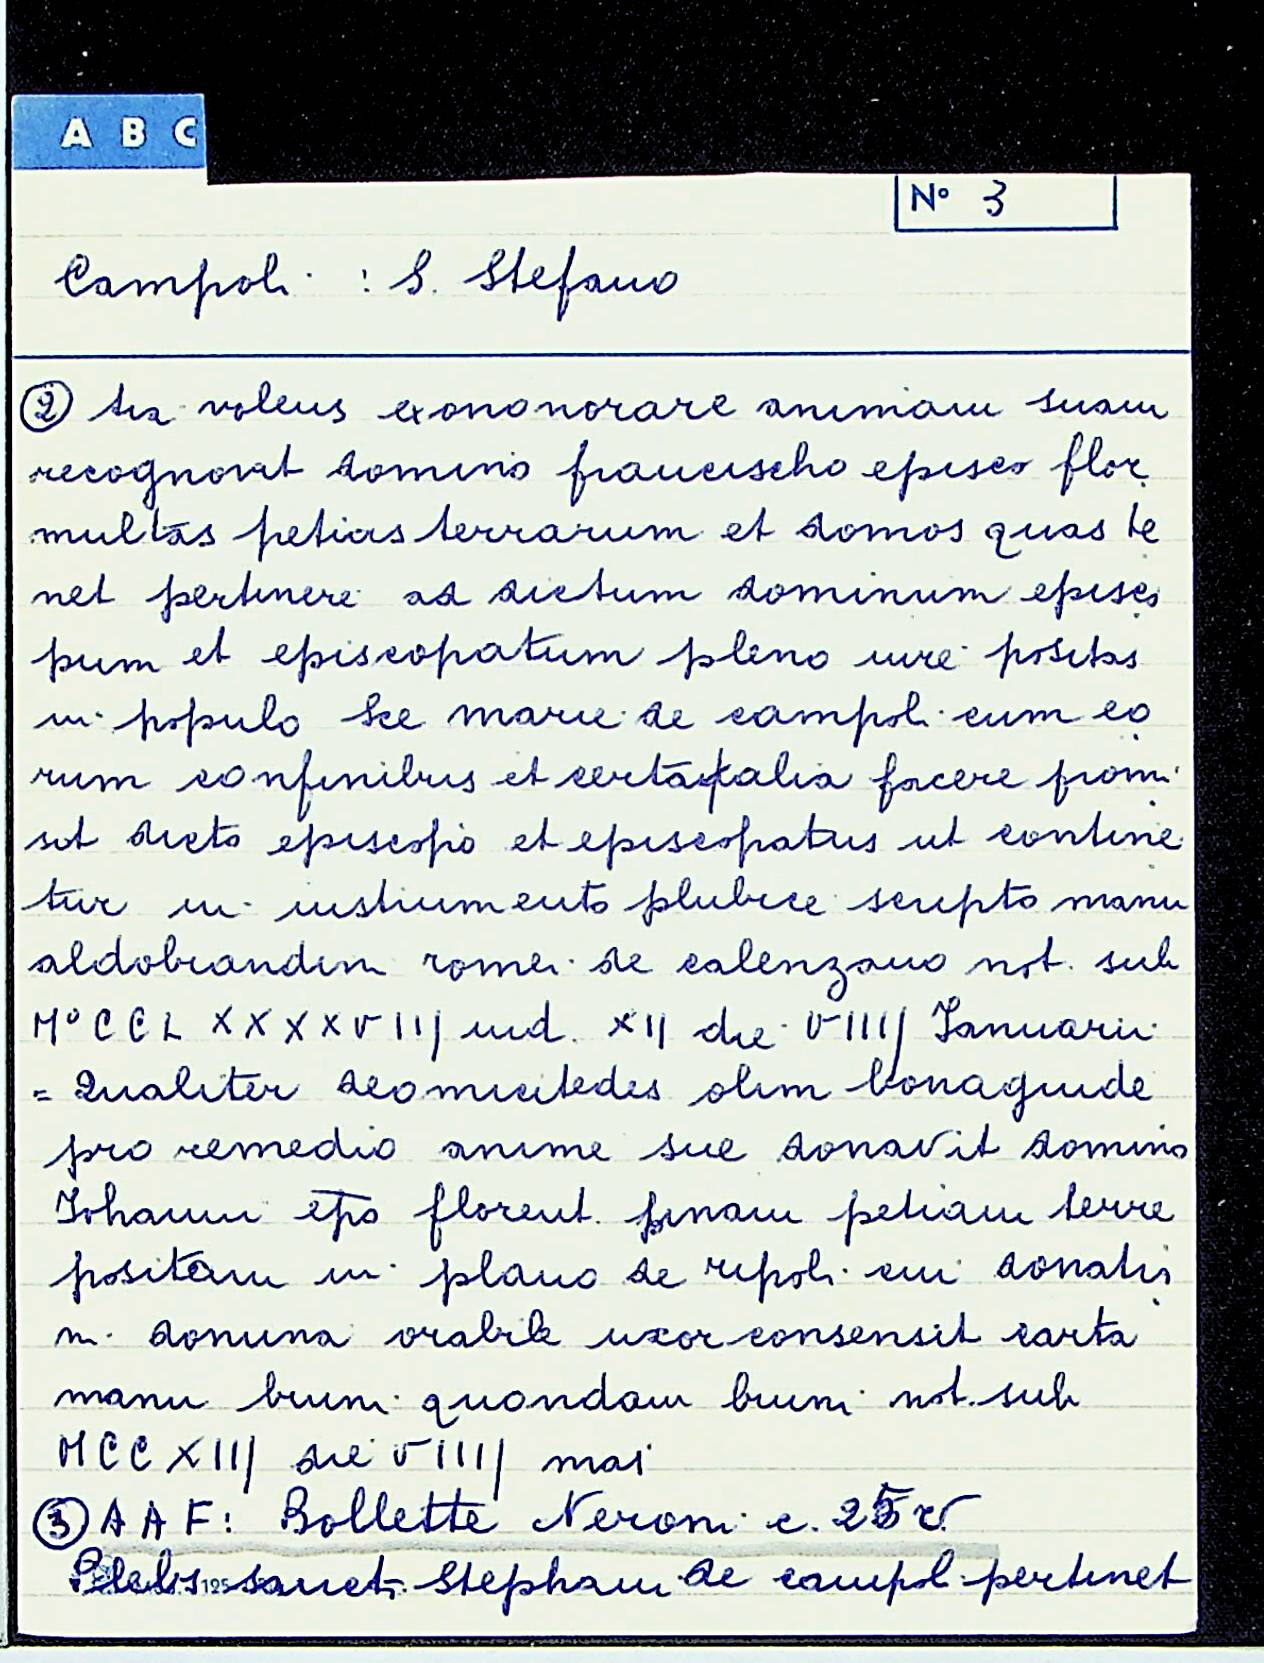 A B C
Nº 3
Campoli : S. Stefano
② tra volens exononorare animam suam
recognovit domino francischo episco flor.
multas petias terrarum et domos quas te
net pertinere ad dictum dominum episco
pum et episcopatum pleno iure positas
in populo Sce marie de campoli cum eo
rum confinibus et certa talia facere promi
sit dicto episcopio et episcopatus ut contine
tur in instrumento plubice scripto manu
aldobrandini romei de calenzano not. sub
Mº CCL XXXXVIII ind. XII die VIIII Januarii
= Qualiter deomicitedes olim bonaguide
pro remedio anime sue donavit domino
Iohanni epo florent. petiam terre
positam in plano de ripoli cui donatio
ni donina orabile uxor consensit carta
manu bruni quondam bruni not. sub
MCCXIII die VIIII mai
③ AAF: Bollette Neroni c. 25 v.
Plebis sancti Stephani de campoli pertinet